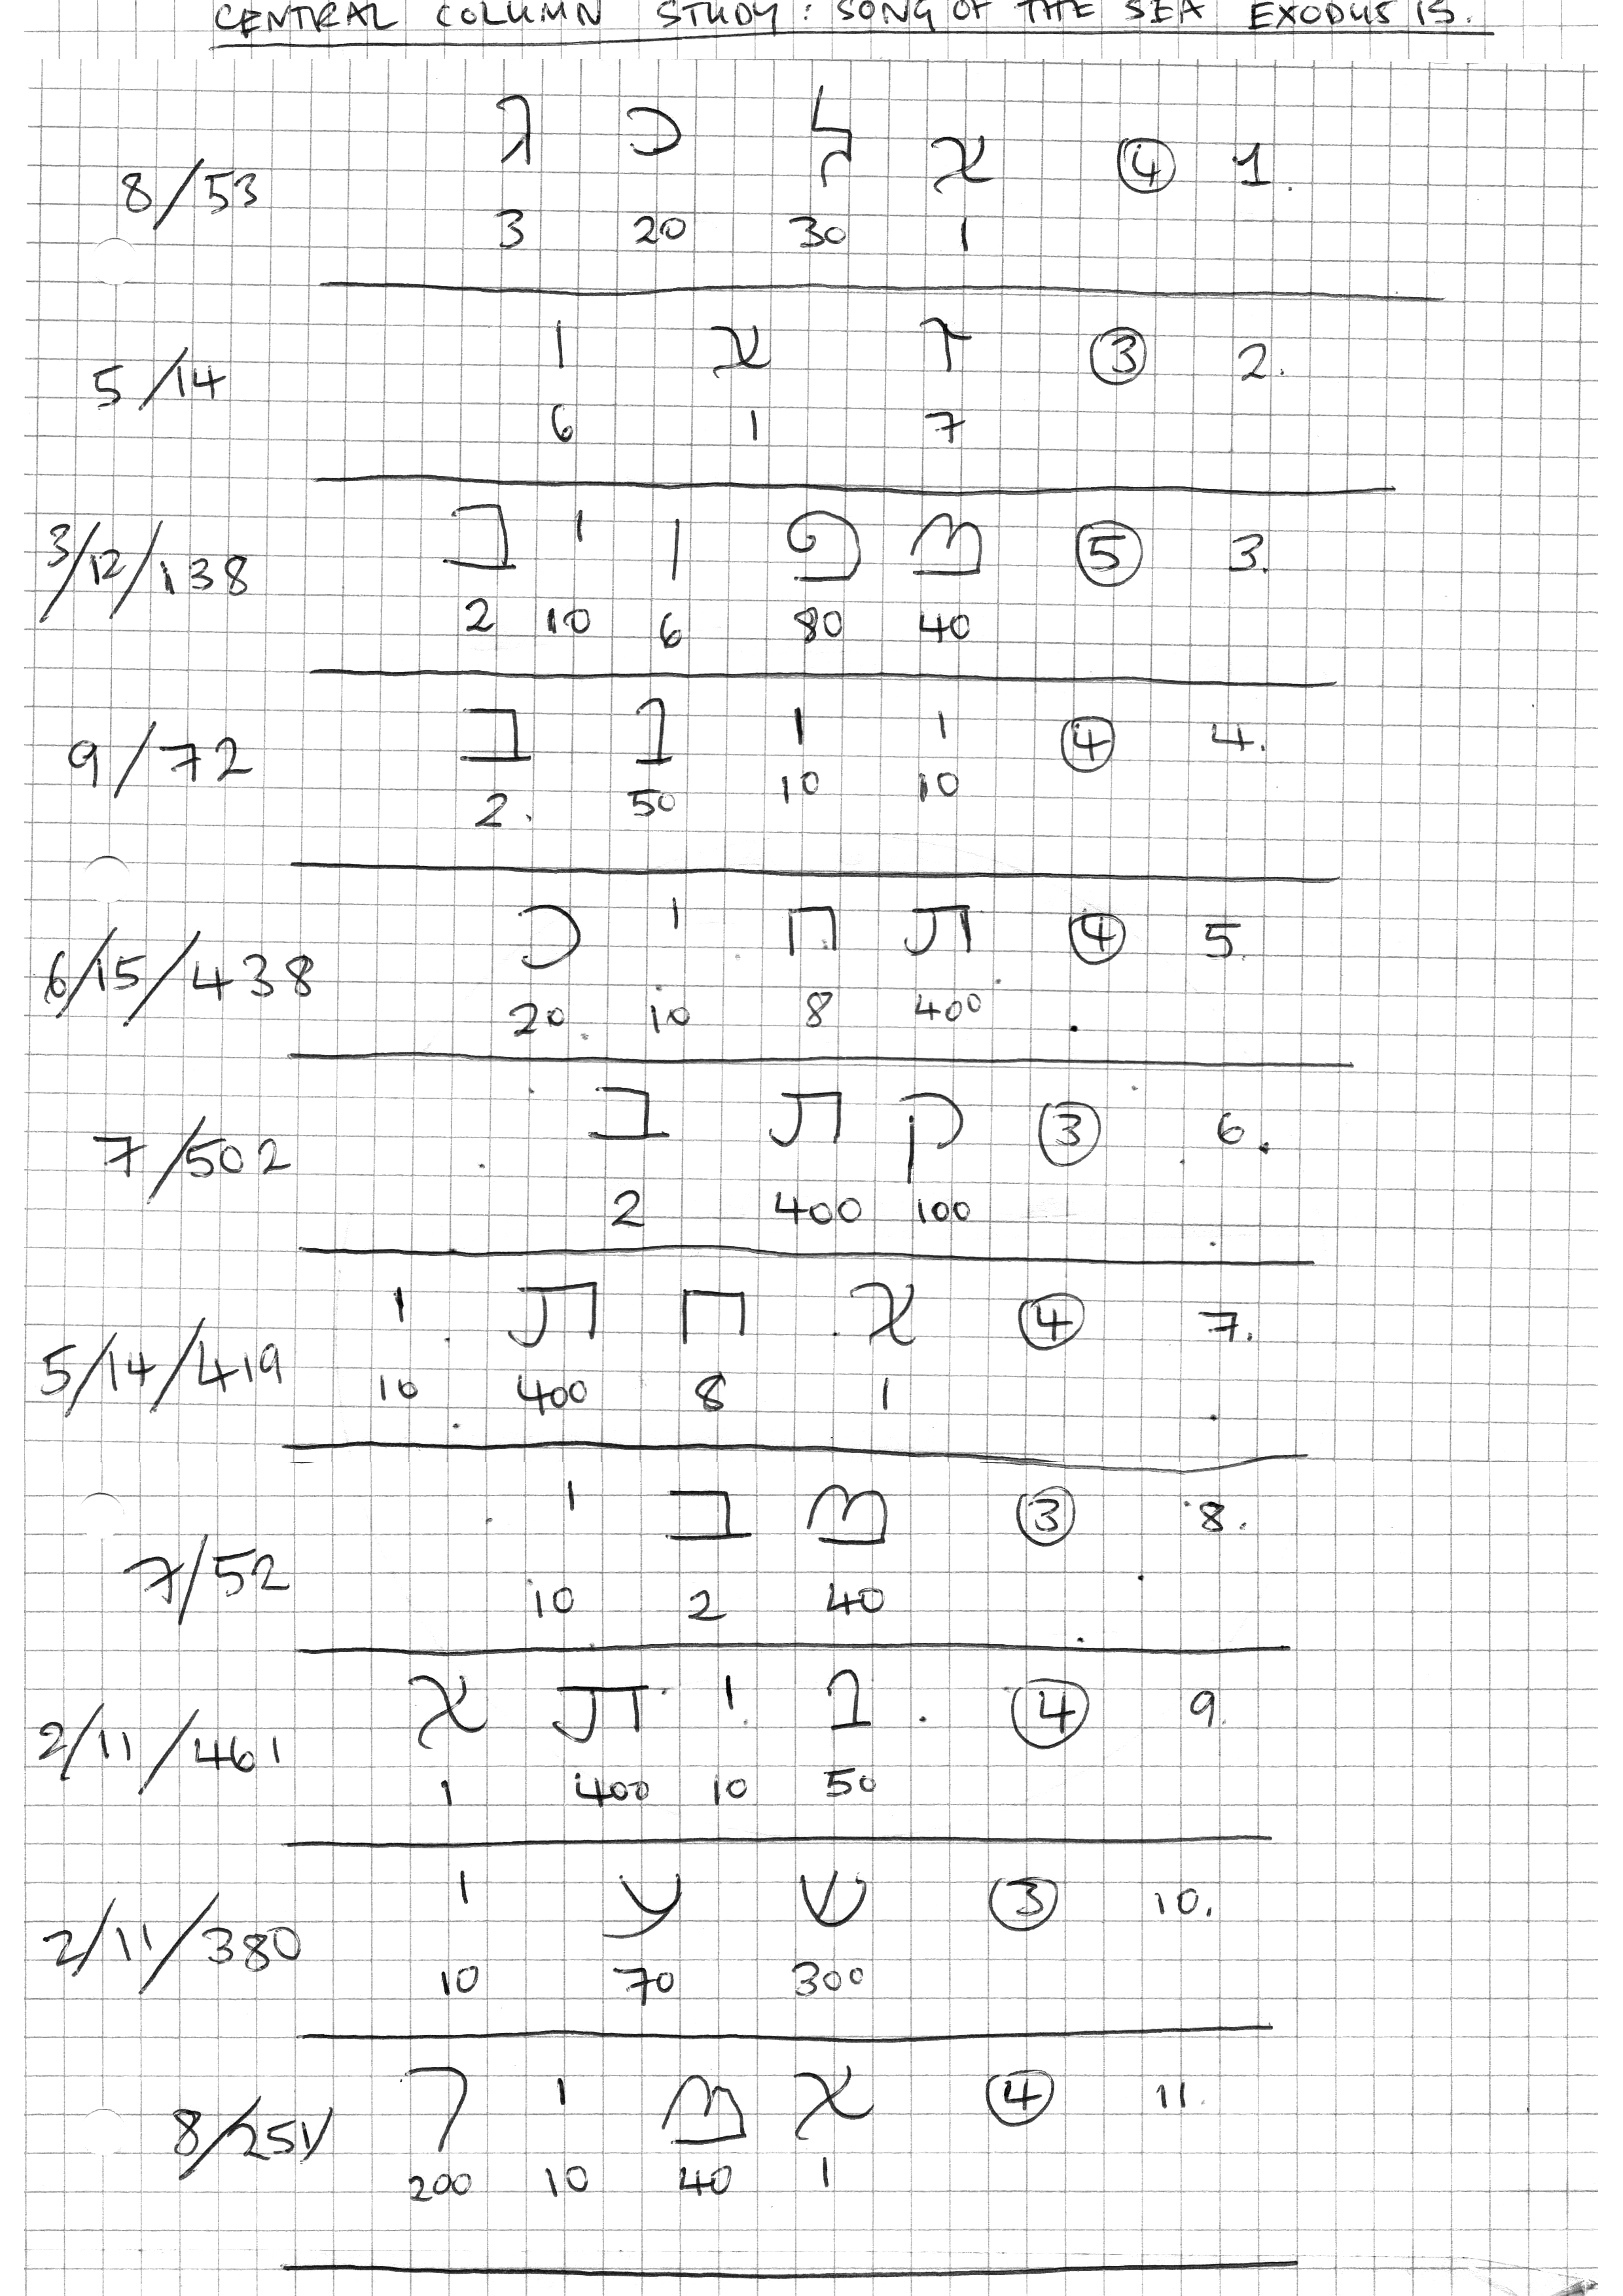 CENTRAL COLUMN STUDY: SONG OF THE SEA EXODUS 15.
1. ④ א ל כ ג
8/53
1 30 20 3
2. ③ ז א ו
5/14
7 1 6
3. ⑤ מ פ ו י ב
3/12/138
40 80 6 10 2
4. ④ י י נ ב
9/72
10 10 50 2.
5. ④ ת ח י כ
6/15/438
400 8 10 20
6. ③ ק ת ב
7/502
100 400 2
7. ④ א ח ת י
5/14/419
1 8 400 10
8. ③ מ ב י
7/52
40 2 10
9. ④ נ י ת א
2/11/461
50 10 400 1
10. ③ ש ע י
2/11/380
300 70 10
11. ④ א מ י ר
8/251
1 40 10 200